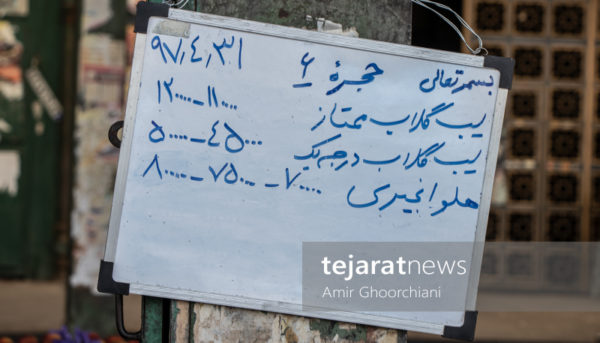 بسمه تعالی حجرهٔ ۶ ۹۷٫۴٫۳۱
سیب گلاب ممتاز ۱۱۰۰۰۰ـ۱۲۰۰۰۰
سیب گلاب درجه یک ۴۵۰۰۰ـ۵۰۰۰۰
هلو انجیری ۷۰۰۰۰ـ۷۵۰۰۰ـ۸۰۰۰۰
tejaratnews
Amir Ghoorchiani